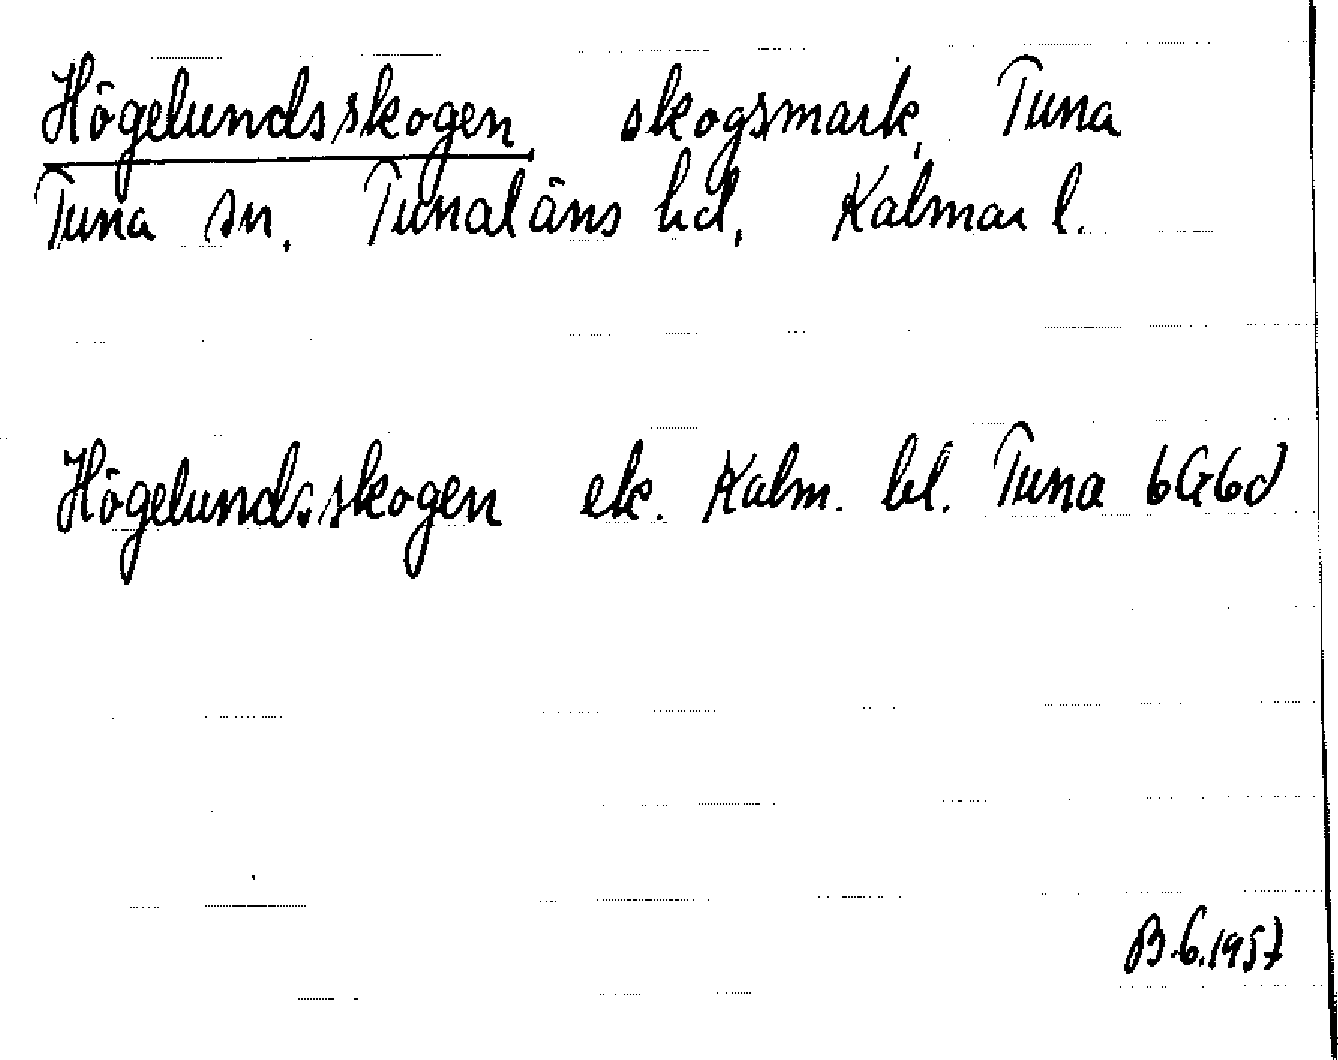 Högelundsskogen skogsmark, Tuna
Tuna sn, Tunaläns hd, Kalmar l.
Högelundsskogen ek. Kalm. bl. Tuna 6G6d
B.G.1957